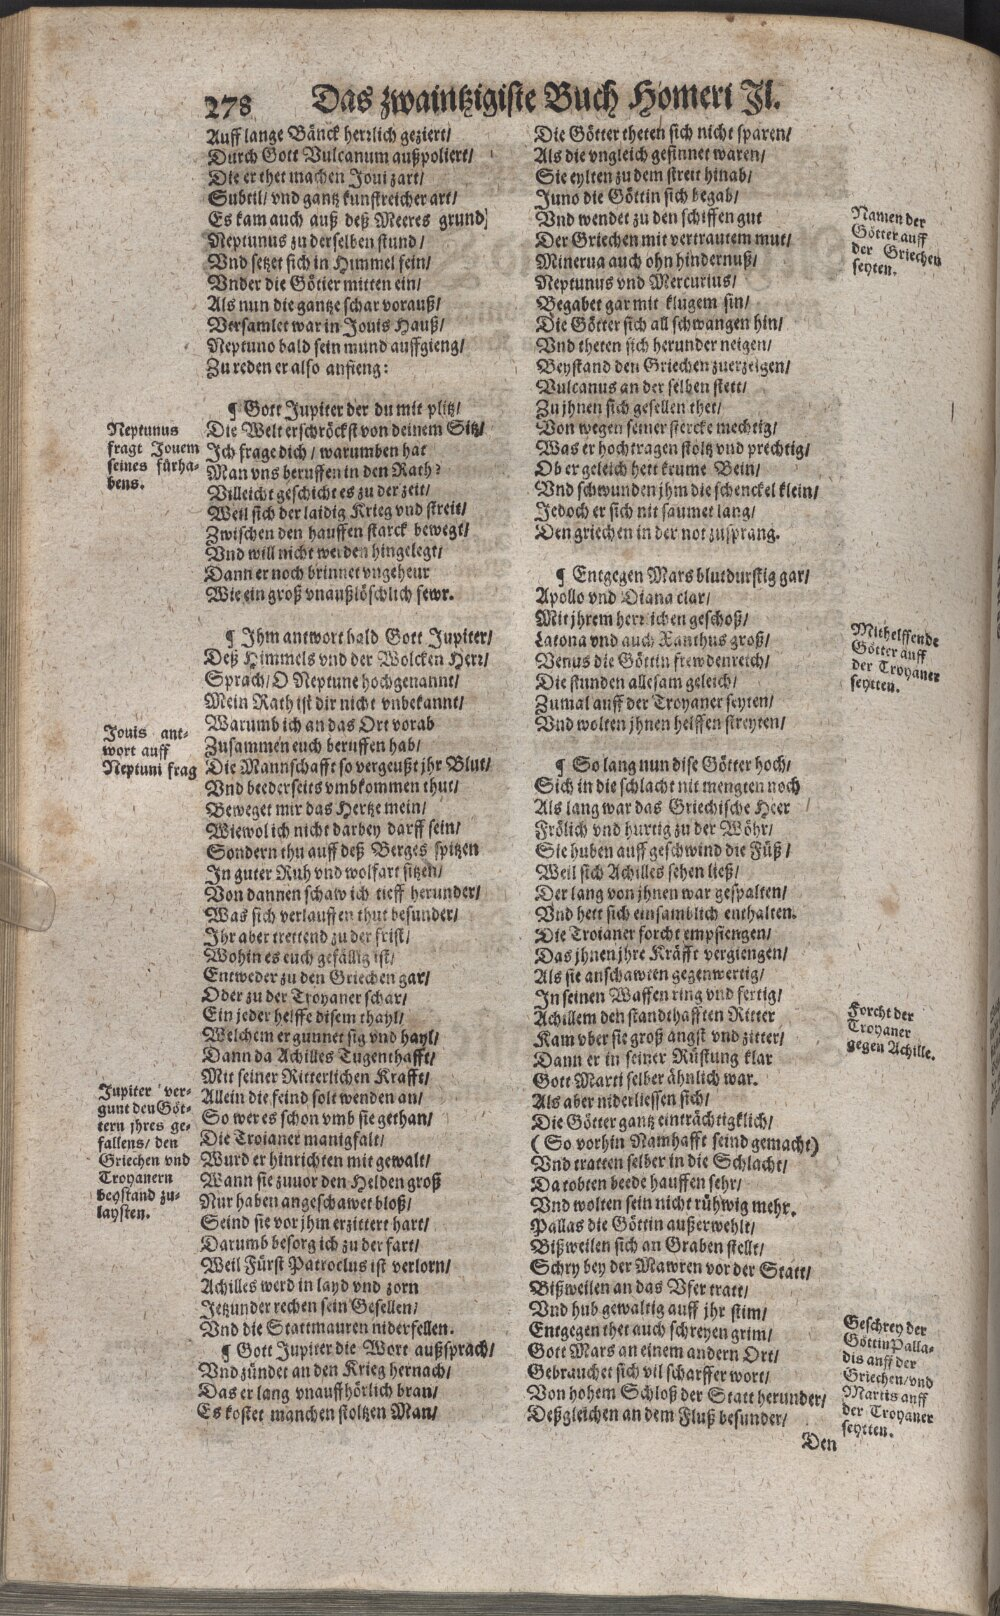 278 Das zwaintzigiste Buch Homeri Jl.
Auff lange Bänck herrlich geziert/
Durch Gott Vulcanum außpoliert/
Die er thet machen Joui zart/
Subtil/ vnd gantz kunstreicher art/
Es kam auch auß deß Meeres grund/
Neptunus zu derselben stund/
Vnd setzet sich in Himmel fein/
Vnder die Götter mitten ein/
Als nun die gantze schar vorauß/
Versamlet war in Jouis Hauß/
Neptuno bald sein mund auffgieng/
Zu reden er also anfieng:
¶ Gott Jupiter der du mit plitz/
Die Welt erschröckst von deinem Sitz/
Ich frage dich/ warumben hat
Man vns beruffen in den Rath?
Villeicht geschicht es zu der zeit/
Weil sich der laidig Krieg vnd streit/
Zwischen den hauffen starck bewegt/
Vnd will nicht werden hingelegt/
Dann er noch brinnet vngeheur
Wie ein groß vnaußlöschlich fewr.
Neptunus
fragt Jouem
seines fürha-
bens.
¶ Ihm antwort bald Gott Jupiter/
Deß Himmels vnd der Wolcken Herr/
Sprach/ O Neptune hochgenannt/
Mein Rath ist dir nicht vnbekannt/
Warumb ich an das Ort vorab
Zusammen euch beruffen hab/
Die Mannschafft so vergeußt jhr Blut/
Vnd beederseits vmbkommen thut/
Beweget mir das Hertze mein/
Wiewol ich nicht darbey darff sein/
Sondern thu auff deß Berges spitzen
In guter Ruh vnd wolfart sitzen/
Von dannen schaw ich tieff herunder/
Was sich verlauffen thut besunder/
Ihr aber trettend zu der frist/
Wohin es euch gefällig ist/
Entweder zu den Griechen gar/
Oder zu der Troyaner schar/
Ein jeder helffe disem thayl/
Welchem er gunnet sig vnd hayl/
Dann da Achilles Tugenthafft/
Mit seiner Ritterlichen Krafft/
Allein die feind solt wenden an/
So wer es schon vmb sie gethan/
Die Troianer manigfalt/
Wurd er hinrichten mit gewalt/
Wann sie zuuor den Helden groß
Nur haben angeschawet bloß/
Seind sie vor jhm erzittert hart/
Darumb besorg ich zu der fart/
Weil Fürst Patroclus ist verlorn/
Achilles werd in layd vnd zorn
Jetzunder rechen sein Gesellen/
Vnd die Stattmauren niderfellen.
Jouis ant-
wort auff
Neptuni frag
Jupiter ver-
gunt den Göt-
tern jhres ge-
fallens/ den
Griechen vnd
Troyanern
beystand zu-
laysten.
¶ Gott Jupiter die Wort außsprach/
Vnd zündet an den Krieg hernach/
Das er lang vnauffhörlich bran/
Es kostet manchen stoltzen Man/
Die Götter theten sich nicht sparen/
Als die vngleich gesinnet waren/
Sie eylten zu dem streit hinab/
Juno die Göttin sich begab/
Vnd wendet zu den schiffen gut
Der Griechen mit vertrautem mut/
Minerua auch ohn hindernuß/
Neptunus vnd Mercurius/
Begabet gar mit klugem sin/
Die Götter sich all schwangen hin/
Vnd theten sich herunder neigen/
Beystand den Griechen zuerzeigen/
Vulcanus an der selben stett/
Zu jhnen sich gesellen thet/
Von wegen seiner stercke mechtig/
Was er hochtragen stoltz vnd prechtig/
Ob er geleich hett krume Bein/
Vnd schwunden jhm die schenckel klein/
Jedoch er sich nit saumet lang/
Den griechen in der not zusprang.
Namen der
Götter auff
der Griechen
seyten.
¶ Entgegen Mars blutdurstig gar/
Apollo vnd Diana clar/
Mit jhrem herrlichen geschoß/
Latona vnd auch Xanthus groß/
Venus die Göttin frewdenreich/
Die stunden allesam geleich/
Zumal auff der Troyaner seyten/
Vnd wolten jhnen helffen streyten/
Mithelffende
Götter auff
der Troyaner
seytten.
¶ So lang nun dise Götter hoch/
Sich in die schlacht nit mengten noch
Als lang war das Griechische Heer
Frölich vnd hurtig zu der Wöhr/
Sie huben auff geschwind die Füß/
Weil sich Achilles sehen ließ/
Der lang von jhnen war gespalten/
Vnd hett sich einsamblich enthalten.
Die Troianer forcht empfiengen/
Das jhnen jhre Kräfft vergiengen/
Als sie anschawten gegenwertig/
In seinen Waffen ring vnd fertig/
Achillem den standthafften Ritter
Kam vber sie groß angst vnd zitter/
Dann er in seiner Rüstung klar
Gott Marti selber ähnlich war.
Als aber niderliessen sich/
Die Götter gantz einträchtigklich/
(So vorhin Namhafft seind gemacht)
Vnd tratten selber in die Schlacht/
Da tobten beede hauffen sehr/
Vnd wolten sein nicht rühwig mehr.
Pallas die Göttin außerwehlt/
Bißweilen sich an Graben stellt/
Schry bey der Mawren vor der Statt/
Bißweilen an das Vfer tratt/
Vnd hub gewaltig auff jhr stim/
Entgegen thet auch schreyen grim/
Gott Mars an einem andern Ort/
Gebrauchet sich vil scharffer wort/
Von hohem Schloß der Statt herunder/
Deßgleichen an dem Fluß besunder/
Forcht der
Troyaner
gegen Achille.
Geschrey der
Göttin Palla-
dis auff der
Griechen/ vnd
Martis auff
der Troyaner
seytten.
Den